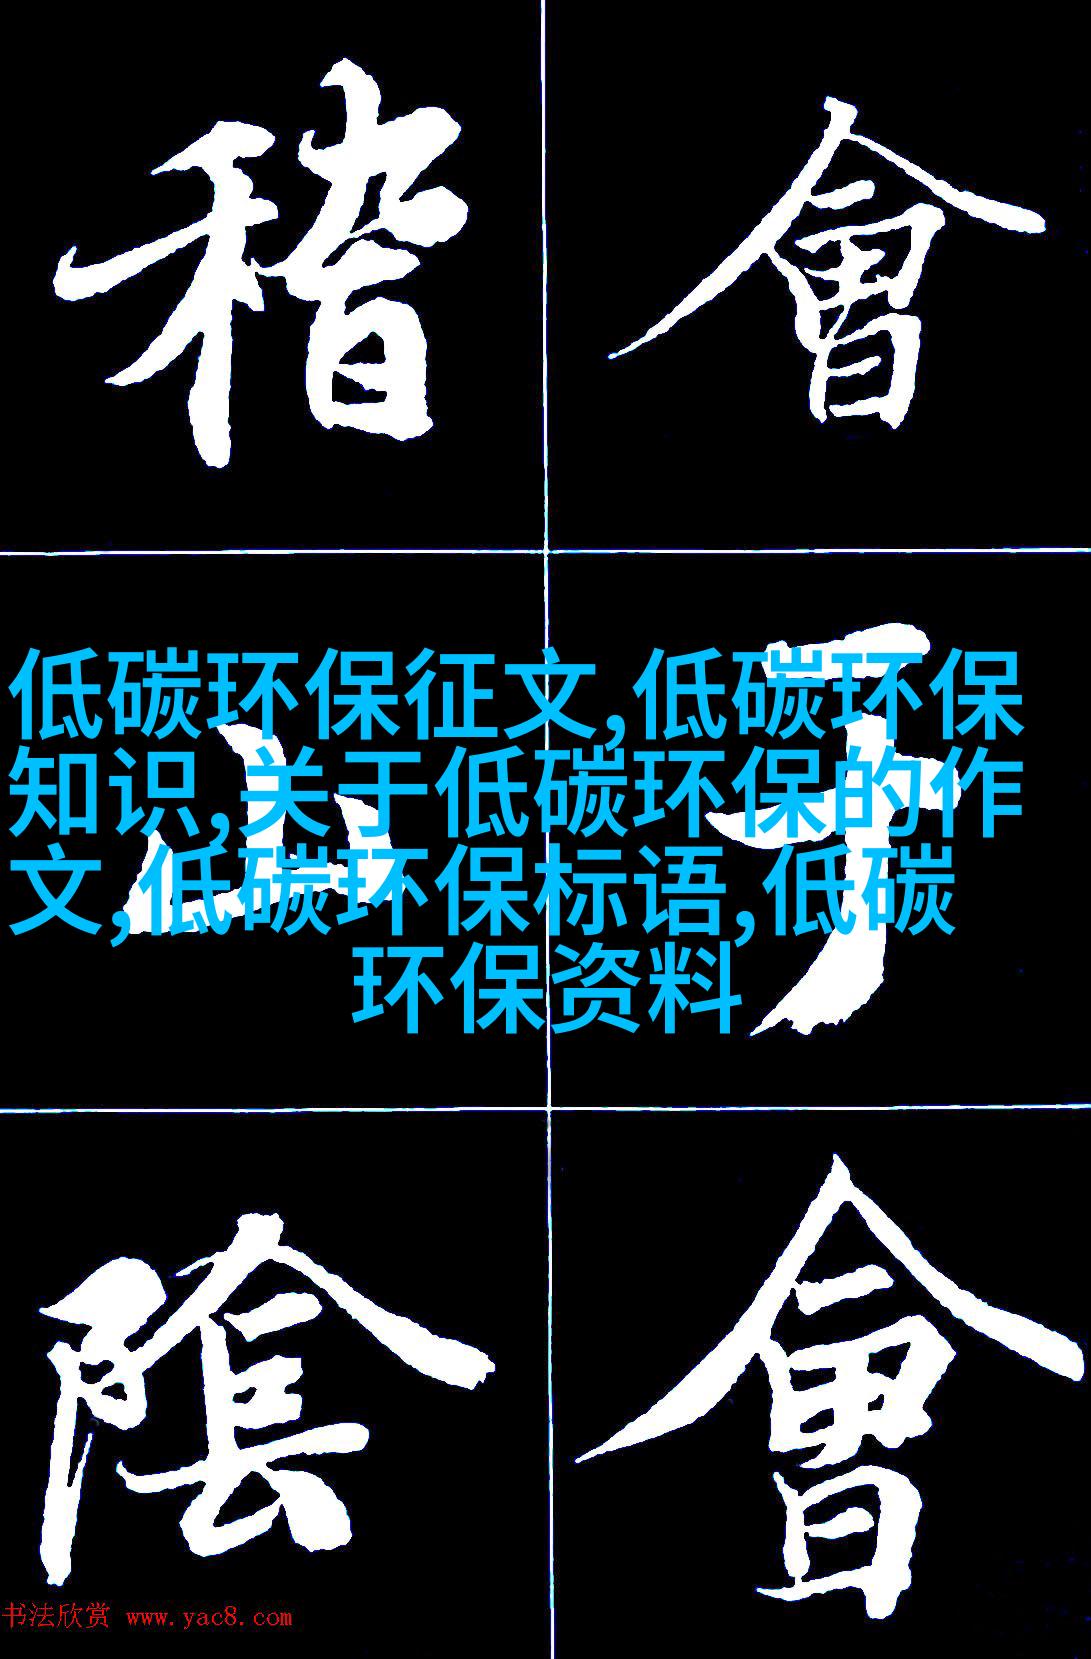 會 于 會
稽 山 陰
低碳环保征文,低碳环保
知识,关于低碳环保的作
文,低碳环保标语,低碳
环保资料
书法欣赏 www.yac8.com